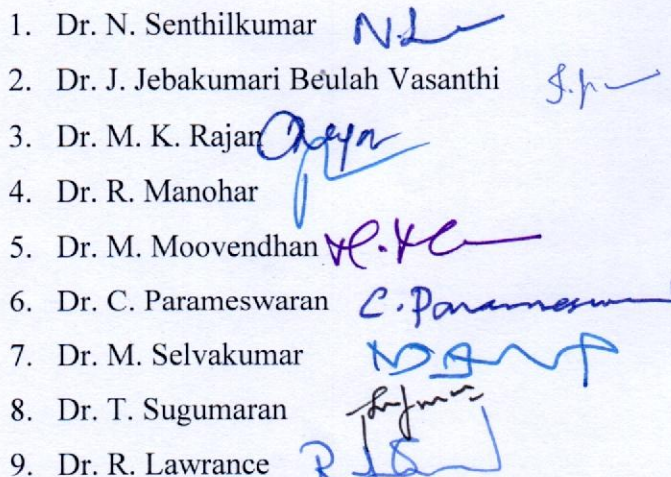 1. Dr. N. Senthilkumar
2. Dr. J. Jebakumari Beulah Vasanthi
3. Dr. M. K. Rajan
4. Dr. R. Manohar
5. Dr. M. Moovendhan
6. Dr. C. Parameswaran C. Parameswaran
7. Dr. M. Selvakumar
8. Dr. T. Sugumaran
9. Dr. R. Lawrance